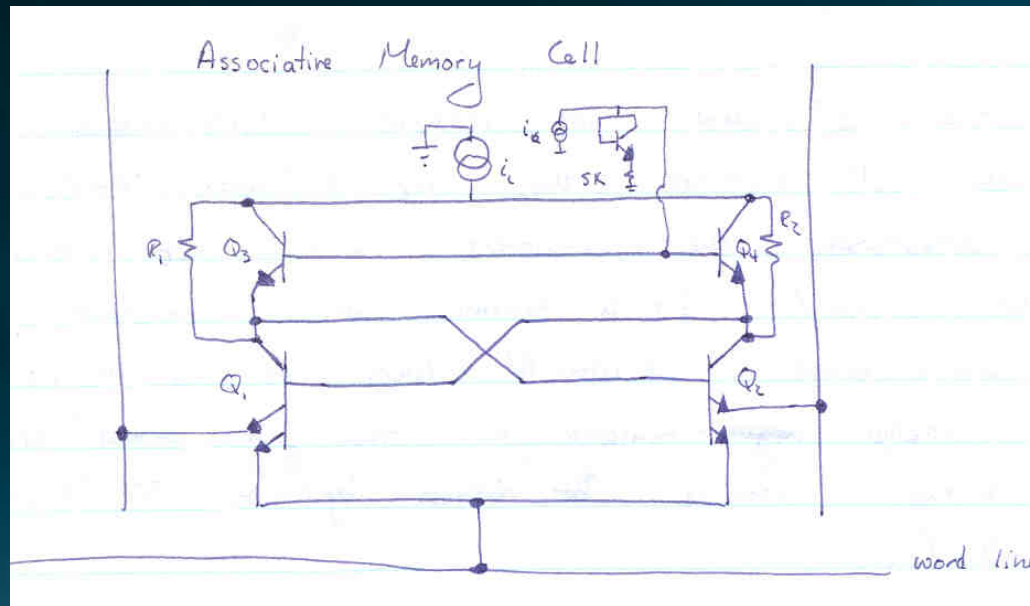 Associative Memory Cell
iL
5K
R1
Q3
Q4
R2
Q1
Q2
word line